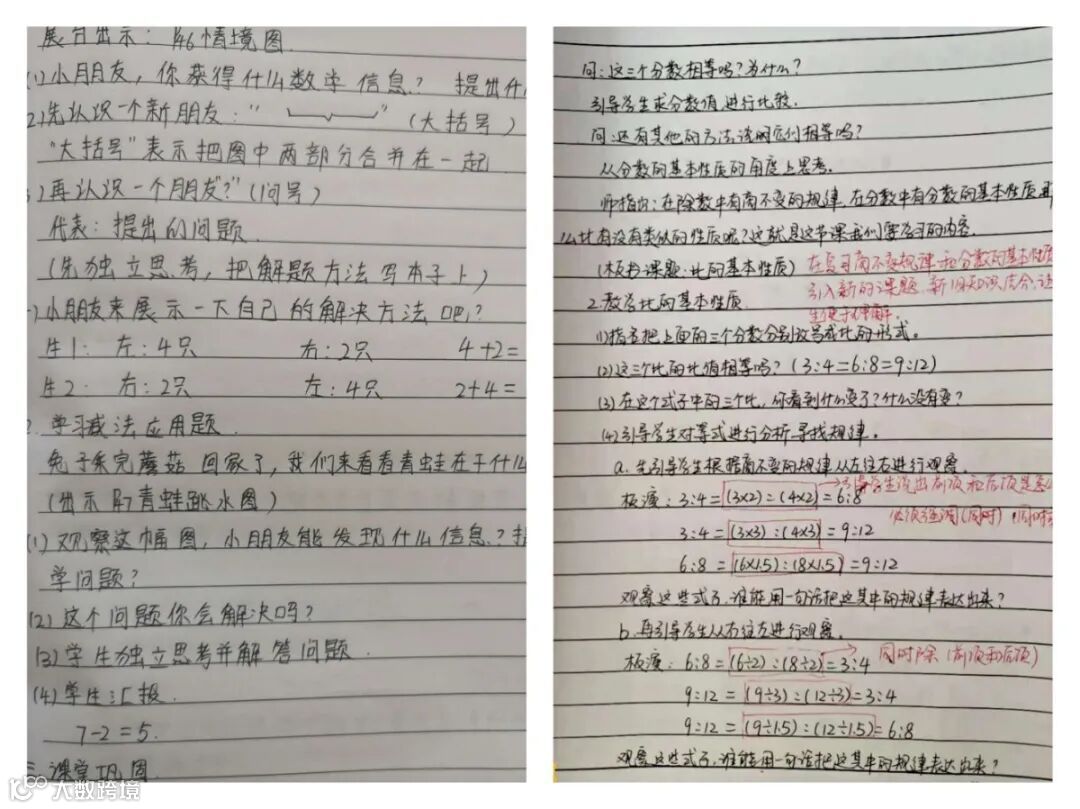 展台出示：P46情境图
(1)小朋友，你获得什么数学信息？ 提出什
2)先认识一个新朋友：“ ”（大括号）
“大括号”表示把图中两部分合并在一起
)再认识一个朋友“？”(问号)
代表：提出的问题.
(先独立思考，把解题方法写本子上)
)小朋友来展示一下自己的解决方法吧？
生1： 左：4只 右：2只 4+2=
生2： 右：2只 左：4只 2+4=
2.学习减法应用题.
兔子采完蘑菇回家了，我们来看看青蛙在干什么
(出示P47青蛙跳水图)
(1)观察这幅图，小朋友能发现什么信息？提
学问题？
(2)这个问题你会解决吗？
(3)学生独立思考并解答问题.
(4)学生汇报.
7-2=5.
三.课堂巩固
大数跨境
问：这三个分数相等吗？为什么？
引导学生求分数值进行比较.
问：还有其他的方法说明它们相等吗？
从分数的基本性质的角度上思考.
师指出：在除数中有商不变的规律，在分数中有分数的基本性质，那
么比有没有类似的性质呢？这就是这节课我们要学习的内容.
(板书课题：比的基本性质) 在复习商不变规律和分数的基本性质
引入新的课题，新旧知识结合，让
2.教学比的基本性质. 生便于理解.
(1)指名把上面的三个分数分别改写成比的形式。
(2)这三个比的比值相等吗？(3:4=6:8=9:12)
(3)在这个式子中的三个比，你看到什么变了？什么没有变？
(4)引导学生对等式进行分析寻找规律。
a.先引导学生根据商不变的规律从左往右进行观察.
板演：3:4=(3×2):(4×2)=6:8 引导学生说出前项和后项是怎么
必须强调(同时)
3:4=(3×3):(4×3)=9:12
6:8=(6×1.5):(8×1.5)=9:12
观察这些式子，谁能用一句话把这其中的规律表达出来？
b.再引导学生从右往左进行观察。
板演：6:8=(6÷2):(8÷2)=3:4 同时除(前项和后项)
9:12=(9÷3):(12÷3)=3:4
9:12=(9÷1.5):(12÷1.5)=6:8
观察这些式子，谁能用一句话把这其中的规律表达出来？